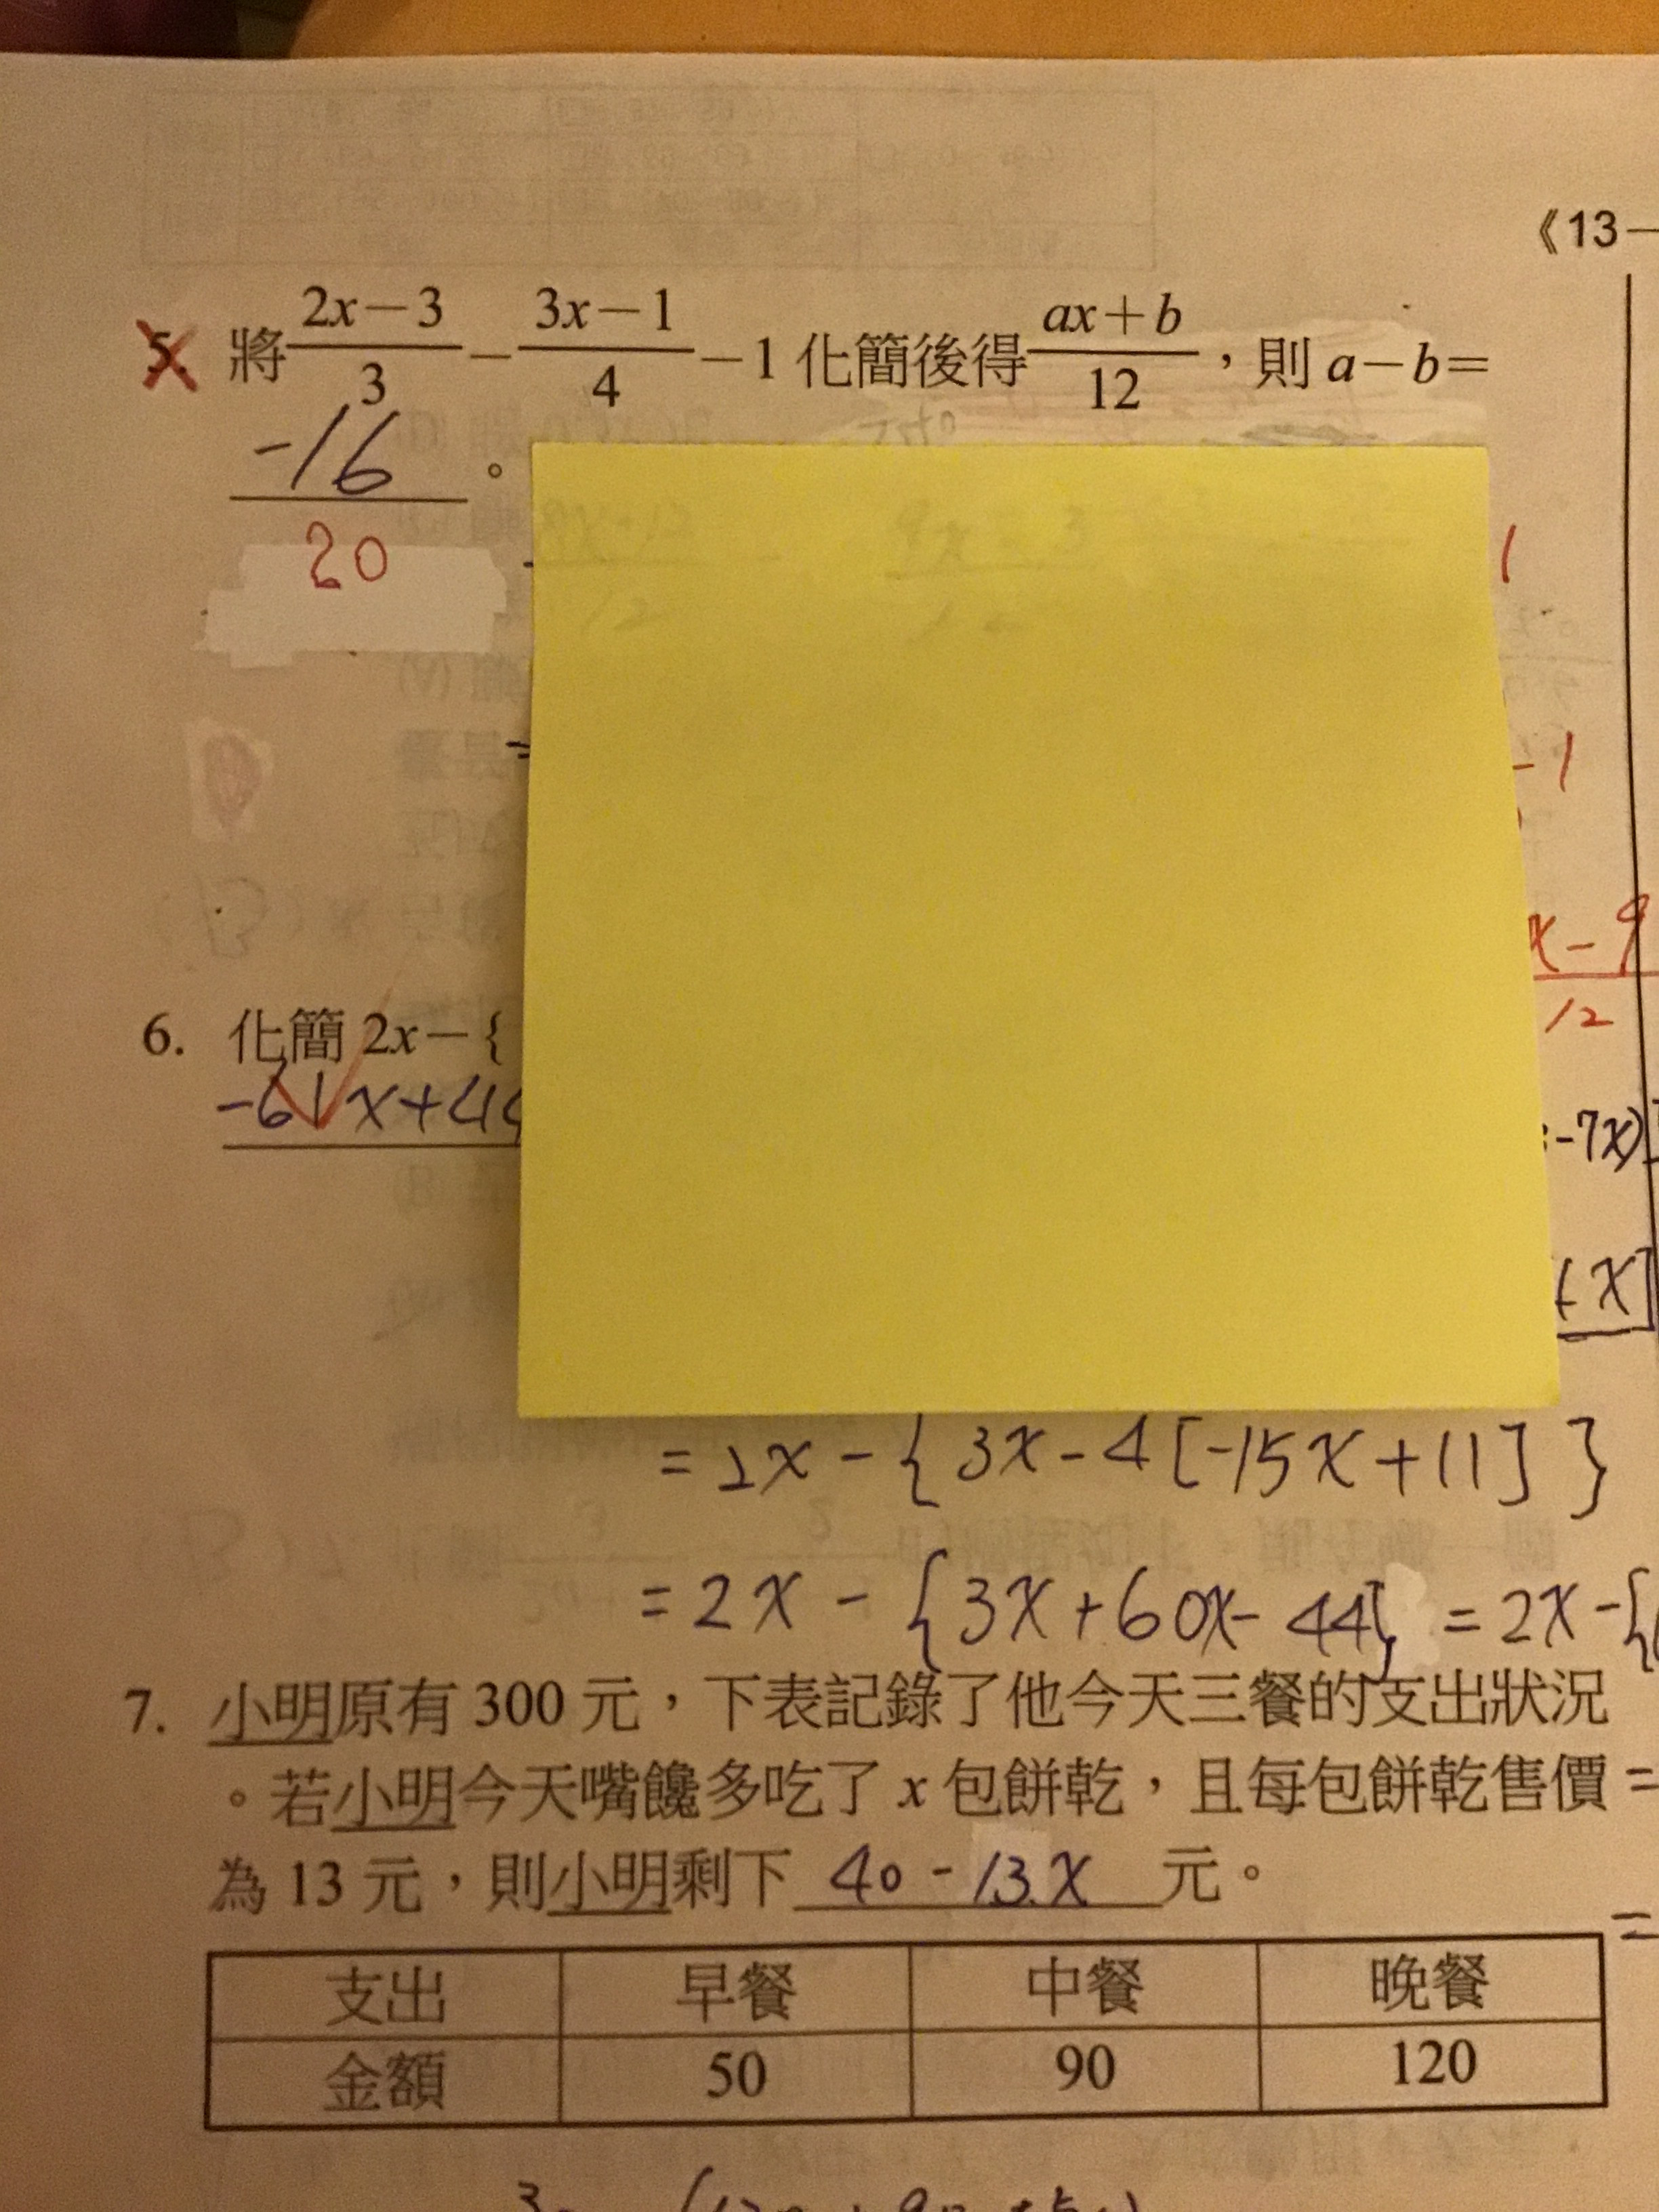 《13－
5. 將 (2x－3)/3 － (3x－1)/4 －1 化簡後得 (ax＋b)/12 ，則 a－b＝
-16 。
20
1
=
-1
x-9
12
6. 化簡 2x－{
-61x+44
-7x)]
+x]
=2x-{3x-4[-15x+11]}
=2x-{3x+60x-44} =2x-{
7. 小明原有 300 元，下表記錄了他今天三餐的支出狀況
。若小明今天嘴饞多吃了 x 包餅乾，且每包餅乾售價 =
為 13 元，則小明剩下 40-13x 元。
=
支出 早餐 中餐 晚餐
金額 50 90 120